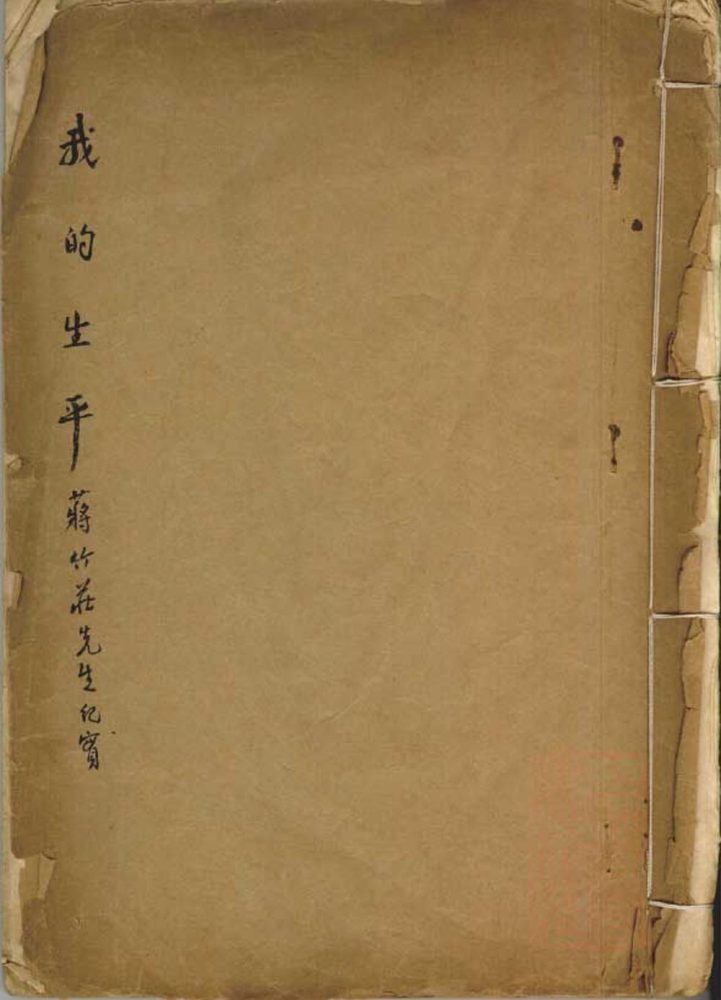 我的生平 蔣竹莊先生纪實